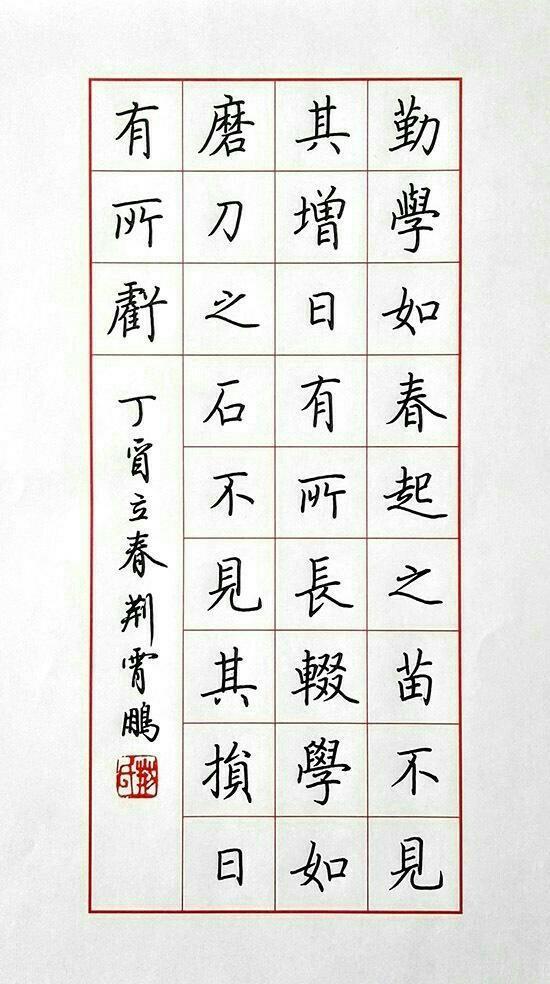 勤學如春起之苗不見
其增日有所長輟學如
磨刀之石不見其損日
有所虧
丁酉立春荊霄鵬